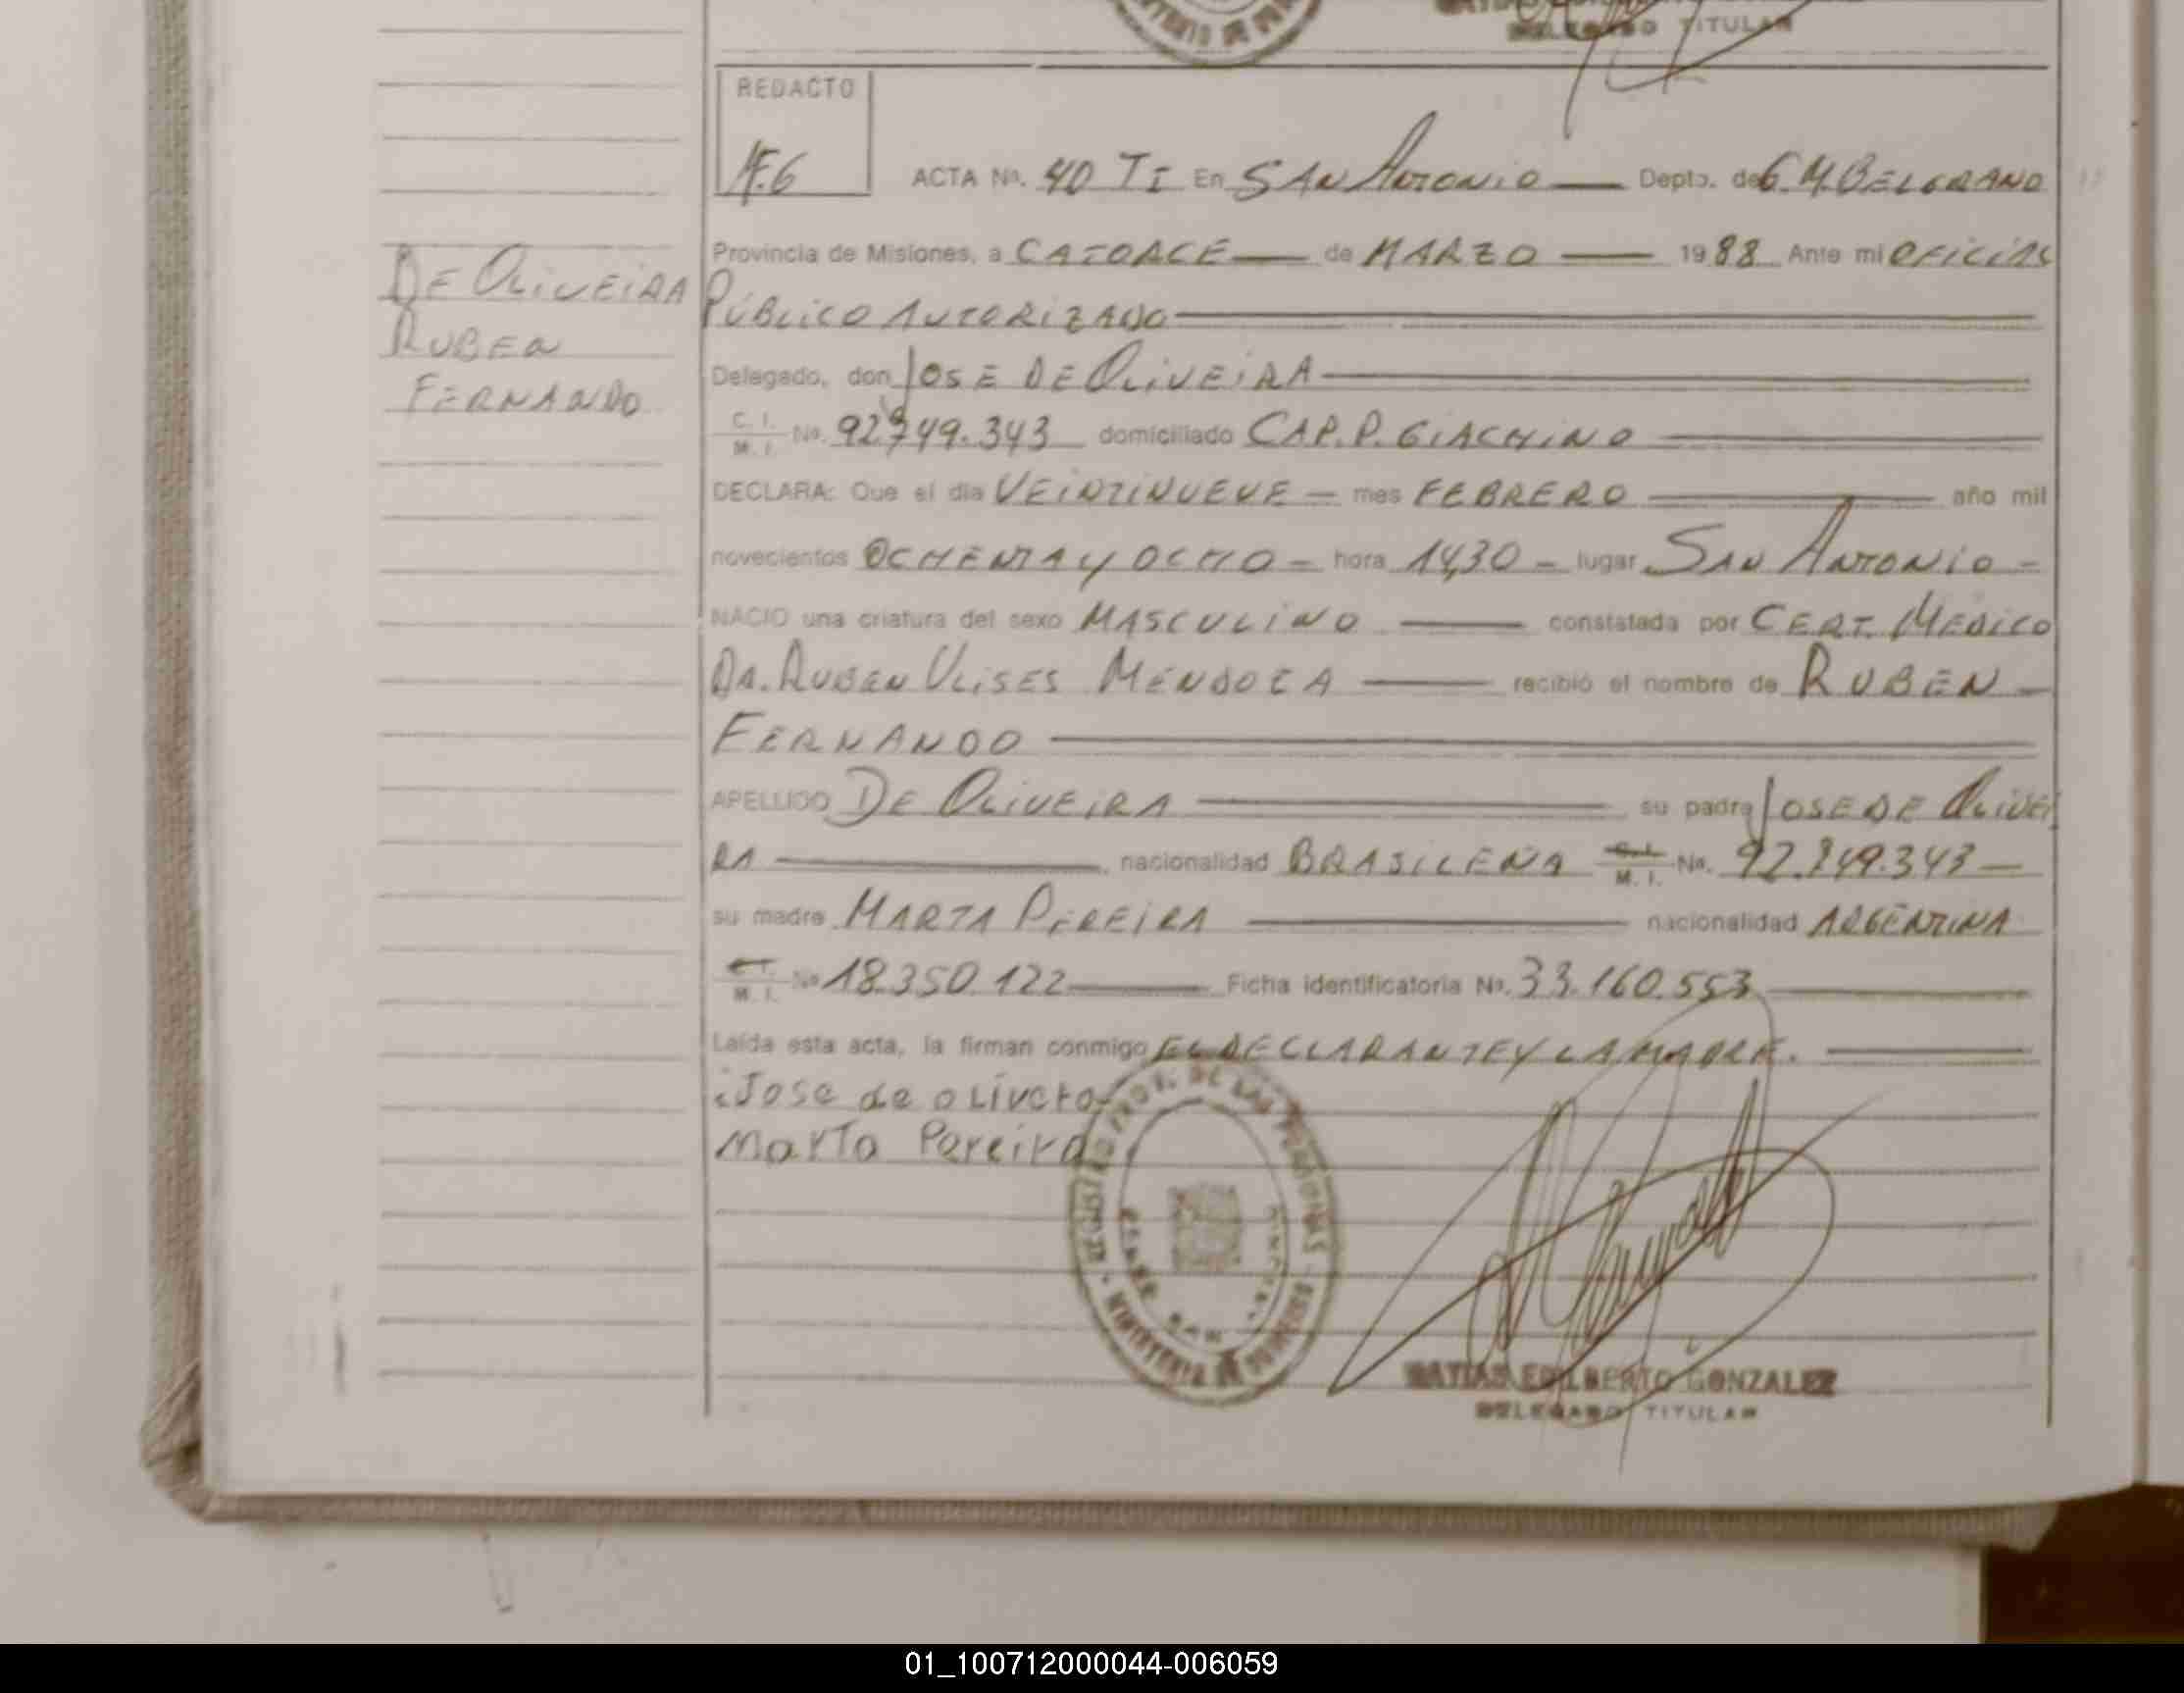 DELEGADO TITULAR
REDACTO
ACTA No. 40 TI En SAN ANTONIO Depto. de G. M. BELGRANO
Provincia de Misiones, a CATORCE de MARZO 1988 Ante mi OFICIAL
PÚBLICO AUTORIZADO
DE OLIVEIRA
RUBEN
FERNANDO
Delegado, don JOSE DE OLIVEIRA
C. I.
M. I. No. 92.849.343 domiciliado CAP. P. GIACHINO
DECLARA: Que el dia VEINTINUEVE mes FEBRERO año mil
novecientos OCHENTA Y OCHO hora 14,30 lugar SAN ANTONIO
NACIO una criatura del sexo MASCULINO constatada por CERT. MEDICO
DR. RUBEN ULISES MENDOZA recibió el nombre de RUBEN
FERNANDO
APELLIDO DE OLIVEIRA su padre JOSE DE OLIVEI
RA nacionalidad BRASILEÑA C. I. M. I. No. 92.849.343
su madre MARTA PEREIRA nacionalidad ARGENTINA
C. I. M. I. No 18.350.122 Ficha identificatoria No. 33.160.553
Leída esta acta, la firman conmigo EL DECLARANTE Y LA MADRE.
Jose de olivera
Marta Pereira
REGISTRO PROV. DE LAS PERSONAS
MATIAS EDILBERTO GONZALEZ
DELEGADO TITULAR
01_100712000044-006059